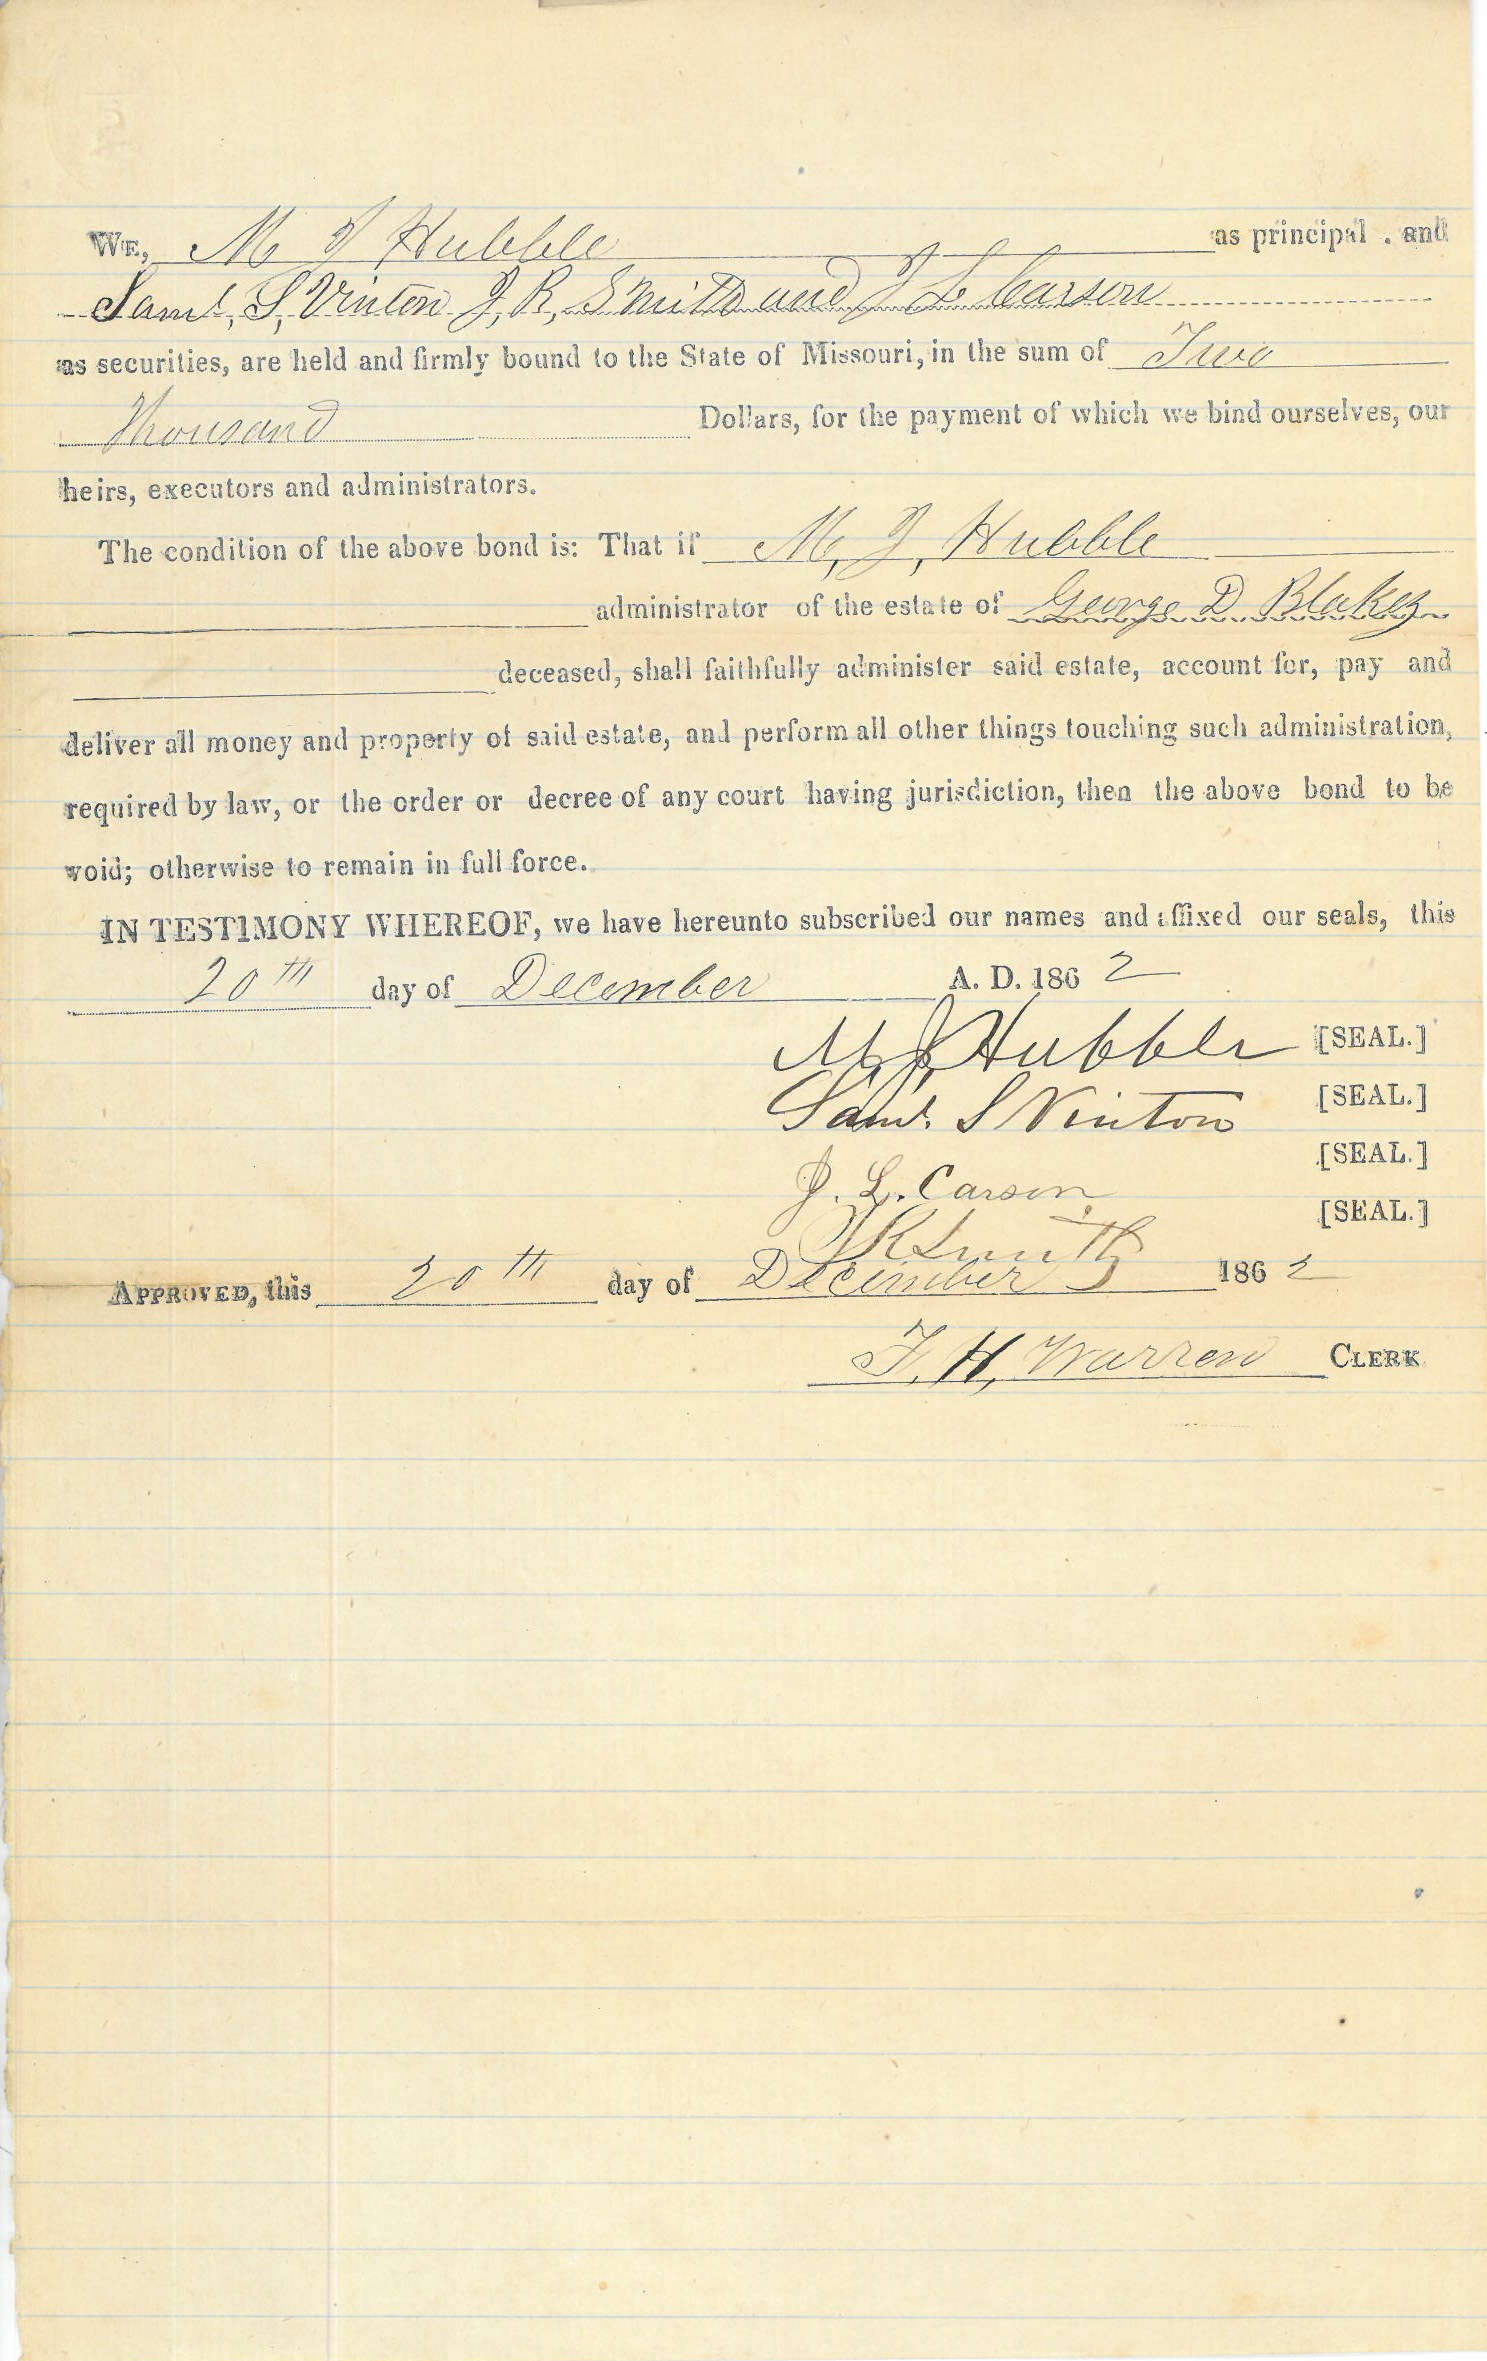 WE, M J Hubble as principal . and
Saml, S, Vinton J, R, Smith and J L Carson
as securities, are held and firmly bound to the State of Missouri, in the sum of Two
Thousand Dollars, for the payment of which we bind ourselves, our
heirs, executors and administrators.
The condition of the above bond is: That if M, J, Hubble
administrator of the estate of George D Blakey
deceased, shall faithfully administer said estate, account for, pay and
deliver all money and property of said estate, and perform all other things touching such administration,
required by law, or the order or decree of any court having jurisdiction, then the above bond to be
void; otherwise to remain in full force.
IN TESTIMONY WHEREOF, we have hereunto subscribed our names and affixed our seals, this
20th day of December A. D. 1862
M, J, Hubble [SEAL.]
Saml. S Vinton [SEAL.]
J. L. Carson [SEAL.]
J R Smith [SEAL.]
APPROVED, this 20th day of December 1862
T, H, Warren CLERK